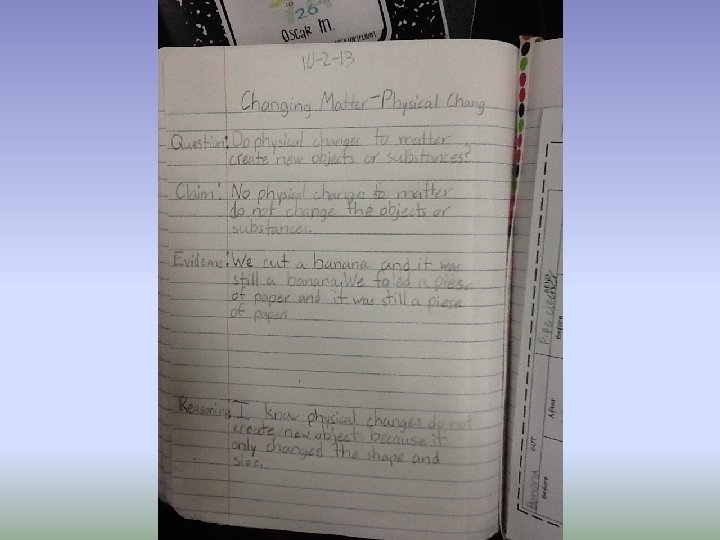 26
Oscar M.
10-2-13
Changing Matter-Physical Chang
Question: Do physical changes to matter
create new objects or substances?
Claim: No physical changes to matter
do not change the objects or
substances.
Evidence: We cut a banana and it was
still a banana. We folded a piese
of paper and it was still a piese
of paper.
Reasoning: I know physical changes do not
create new object because it
only changed the shape and
size.
Banana
CUT
Before
After
Pipe cleaner
Before